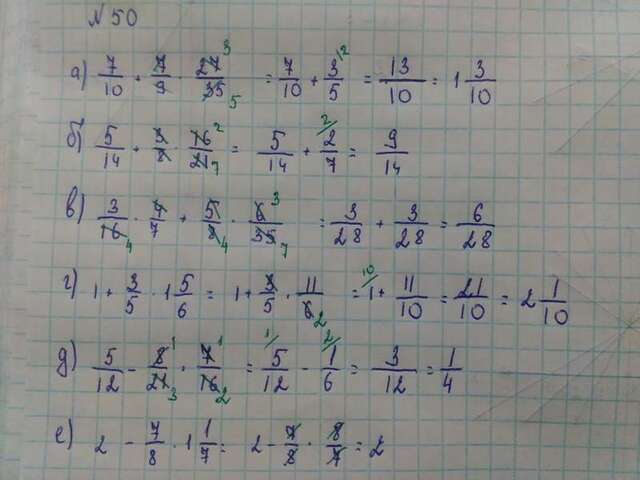 №50
а) 7/10 + 7/9 · 27/35 = 7/10 + 3/5 = 13/10 = 1 3/10
б) 5/14 + 3/8 · 16/21 = 5/14 + 2/7 = 9/14
в) 3/16 · 4/7 + 5/8 · 6/35 = 3/28 + 3/28 = 6/28
г) 1 + 3/5 · 1 5/6 = 1 + 3/5 · 11/6 = 1 + 11/10 = 21/10 = 2 1/10
д) 5/12 - 8/21 · 7/16 = 5/12 - 1/6 = 3/12 = 1/4
е) 2 - 7/8 · 1 1/7 = 2 - 7/8 · 8/7 = 2